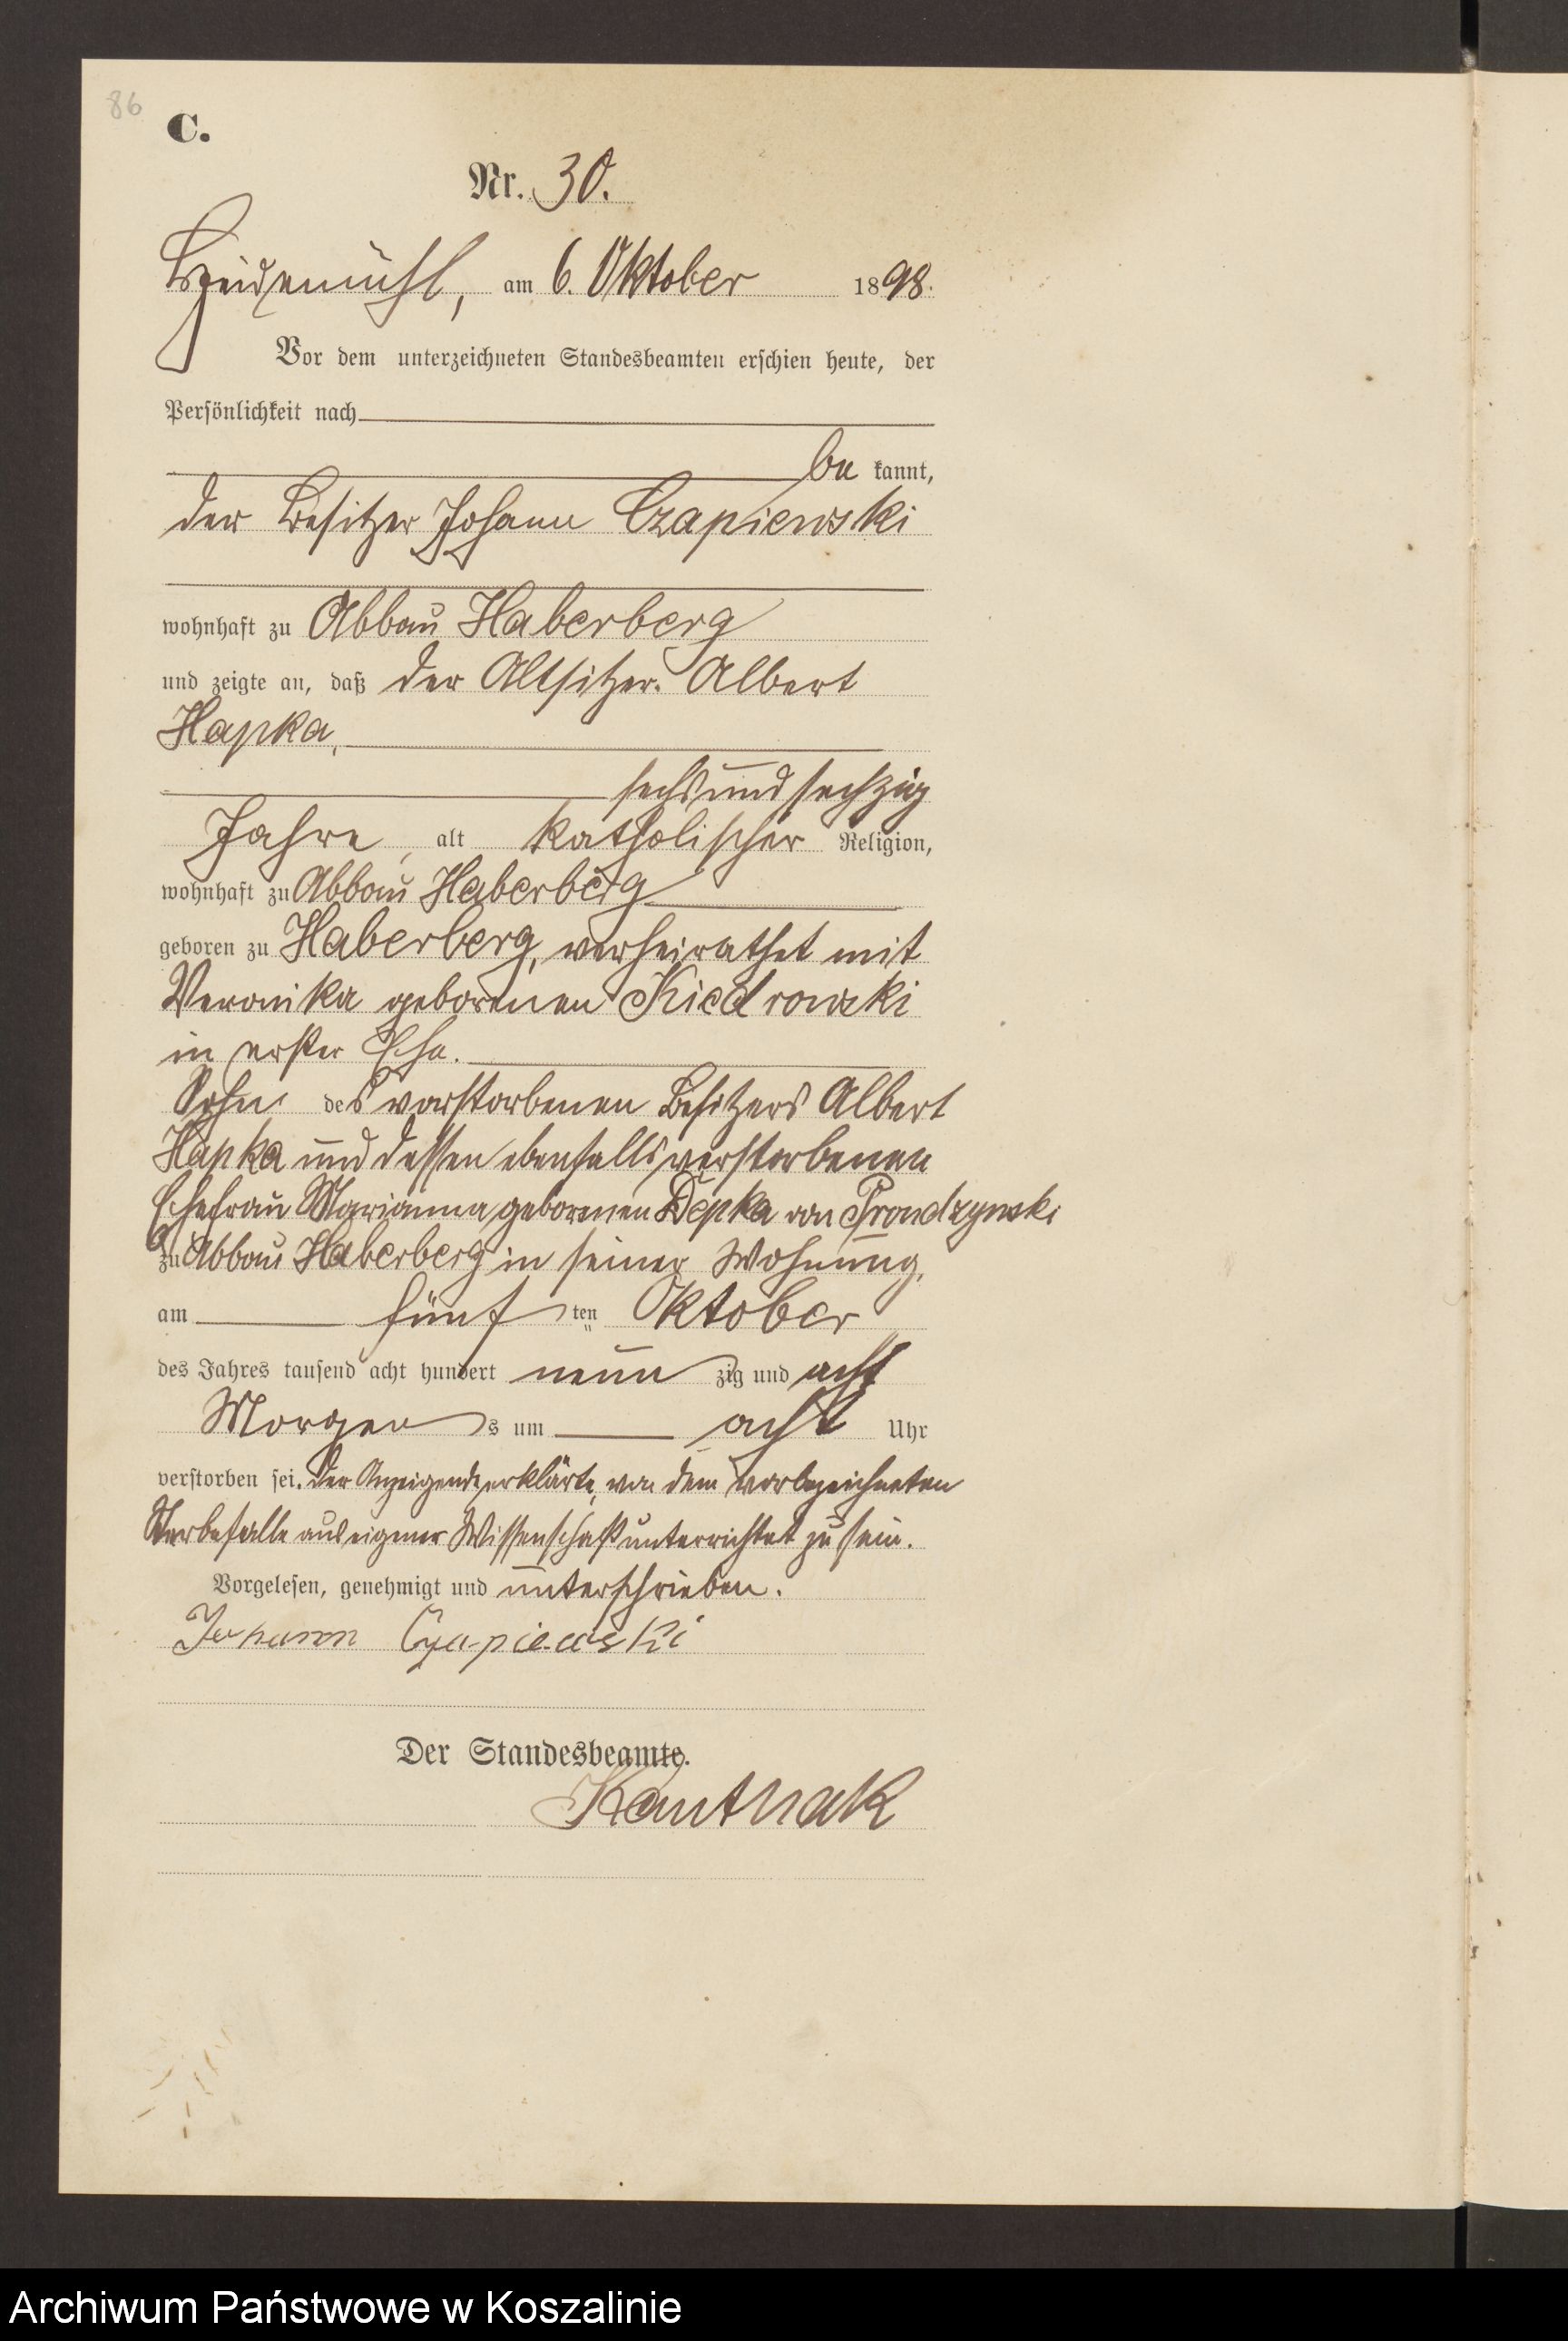 86
C.
Nr. 30.
Heidemühl, am 6. Oktober 1898.
Vor dem unterzeichneten Standesbeamten erschien heute, der
Persönlichkeit nach
be kannt,
der Besitzer Johann Czapiewski
wohnhaft zu Abbau Haberberg
und zeigte an, daß der Altsitzer Albert
Hapka,
sechsundsechzig
Jahre, alt katholischer Religion,
wohnhaft zu Abbau Haberberg
geboren zu Haberberg, verheirathet mit
Veronika geborenen Kiedrowski
in erster Ehe.
Sohn des verstorbenen Besitzers Albert
Hapka und dessen ebenfalls verstorbenen
Ehefrau Marianna geborenen Depka von Prondzynski
zu Abbau Haberberg in seiner Wohnung,
am fünf ten Oktober
des Jahres tausend acht hundert neun zig und acht
Morgen s um acht Uhr
verstorben sei. Der Anzeigende erklärte, von dem vorbezeichneten
Sterbefalle aus eigener Wissenschaft unterrichtet zu sein.
Vorgelesen, genehmigt und unterschrieben.
Johann Czapiewski
Der Standesbeamte.
Kanthak
Archiwum Państwowe w Koszalinie